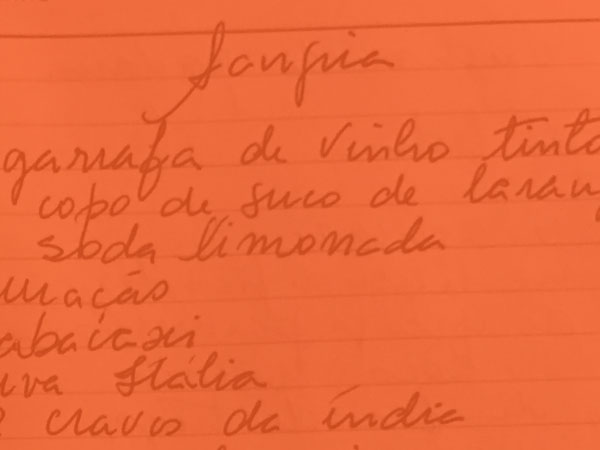 Sangria
garrafa de vinho tinto
copo de suco de laran
soda limonada
maçãs
abacaxi
uva Itália
cravos da índia